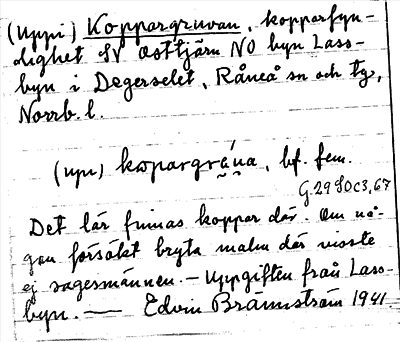 (Uppi) Koppargruvan, kopparfyn-
dighet SV Osttjärn NO byn Lass-
byn i Degerselet, Råneå sn och tg,
Norrb. l.
(upi) kopargrúna, bf. fem.
G 29 SO c 3, 67
Det lär finnas koppar där. Om nå-
gon försökt bryta malm där visste
ej sagesmännen. – Uppgiften från Lass-
byn. — Edvin Brännström 1941.